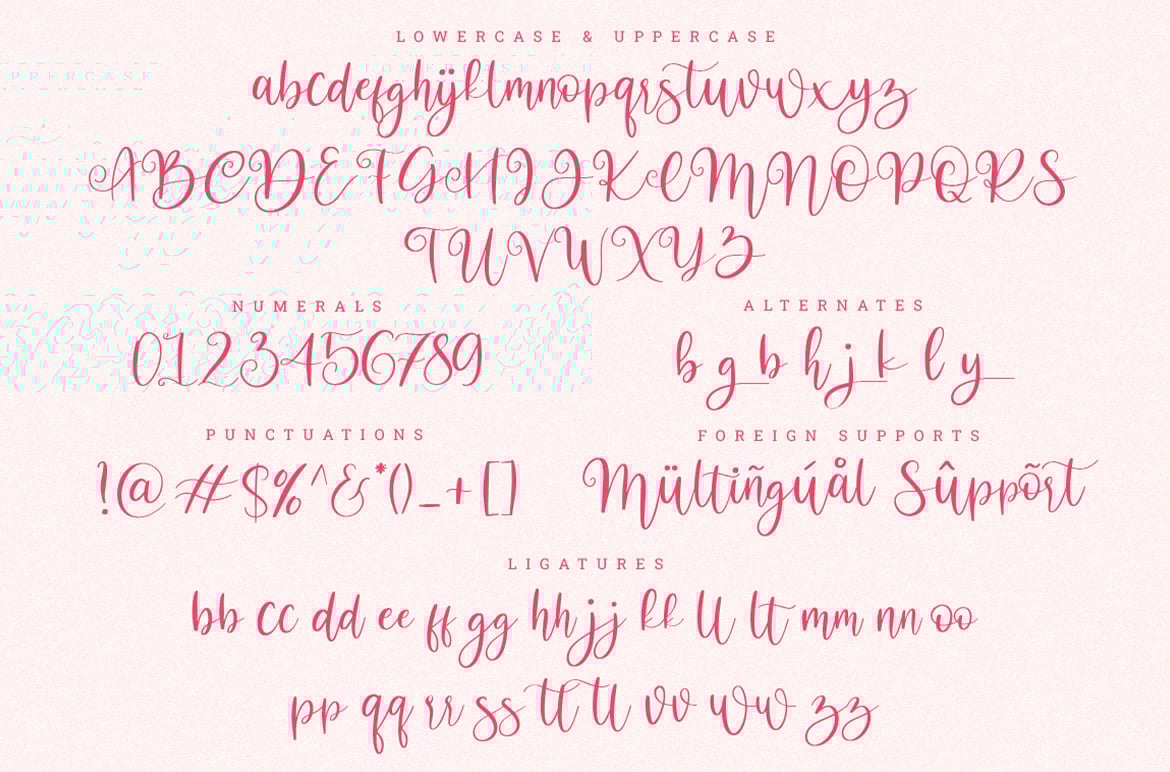 LOWERCASE & UPPERCASE
abcdefghijklmnopqrstuvwxyz
ABCDEFGHIJKLMNOPQRS
TUVWXYZ
NUMERALS
0123456789
ALTERNATES
b g b h j k l y
PUNCTUATIONS
!@#$%^&*()_+[]
FOREIGN SUPPORTS
Mültiñgúål Sûppõrt
LIGATURES
bb cc dd ee ff gg hh jj kk ll lt mm nn oo
pp qq rr ss tt tl vv ww zz